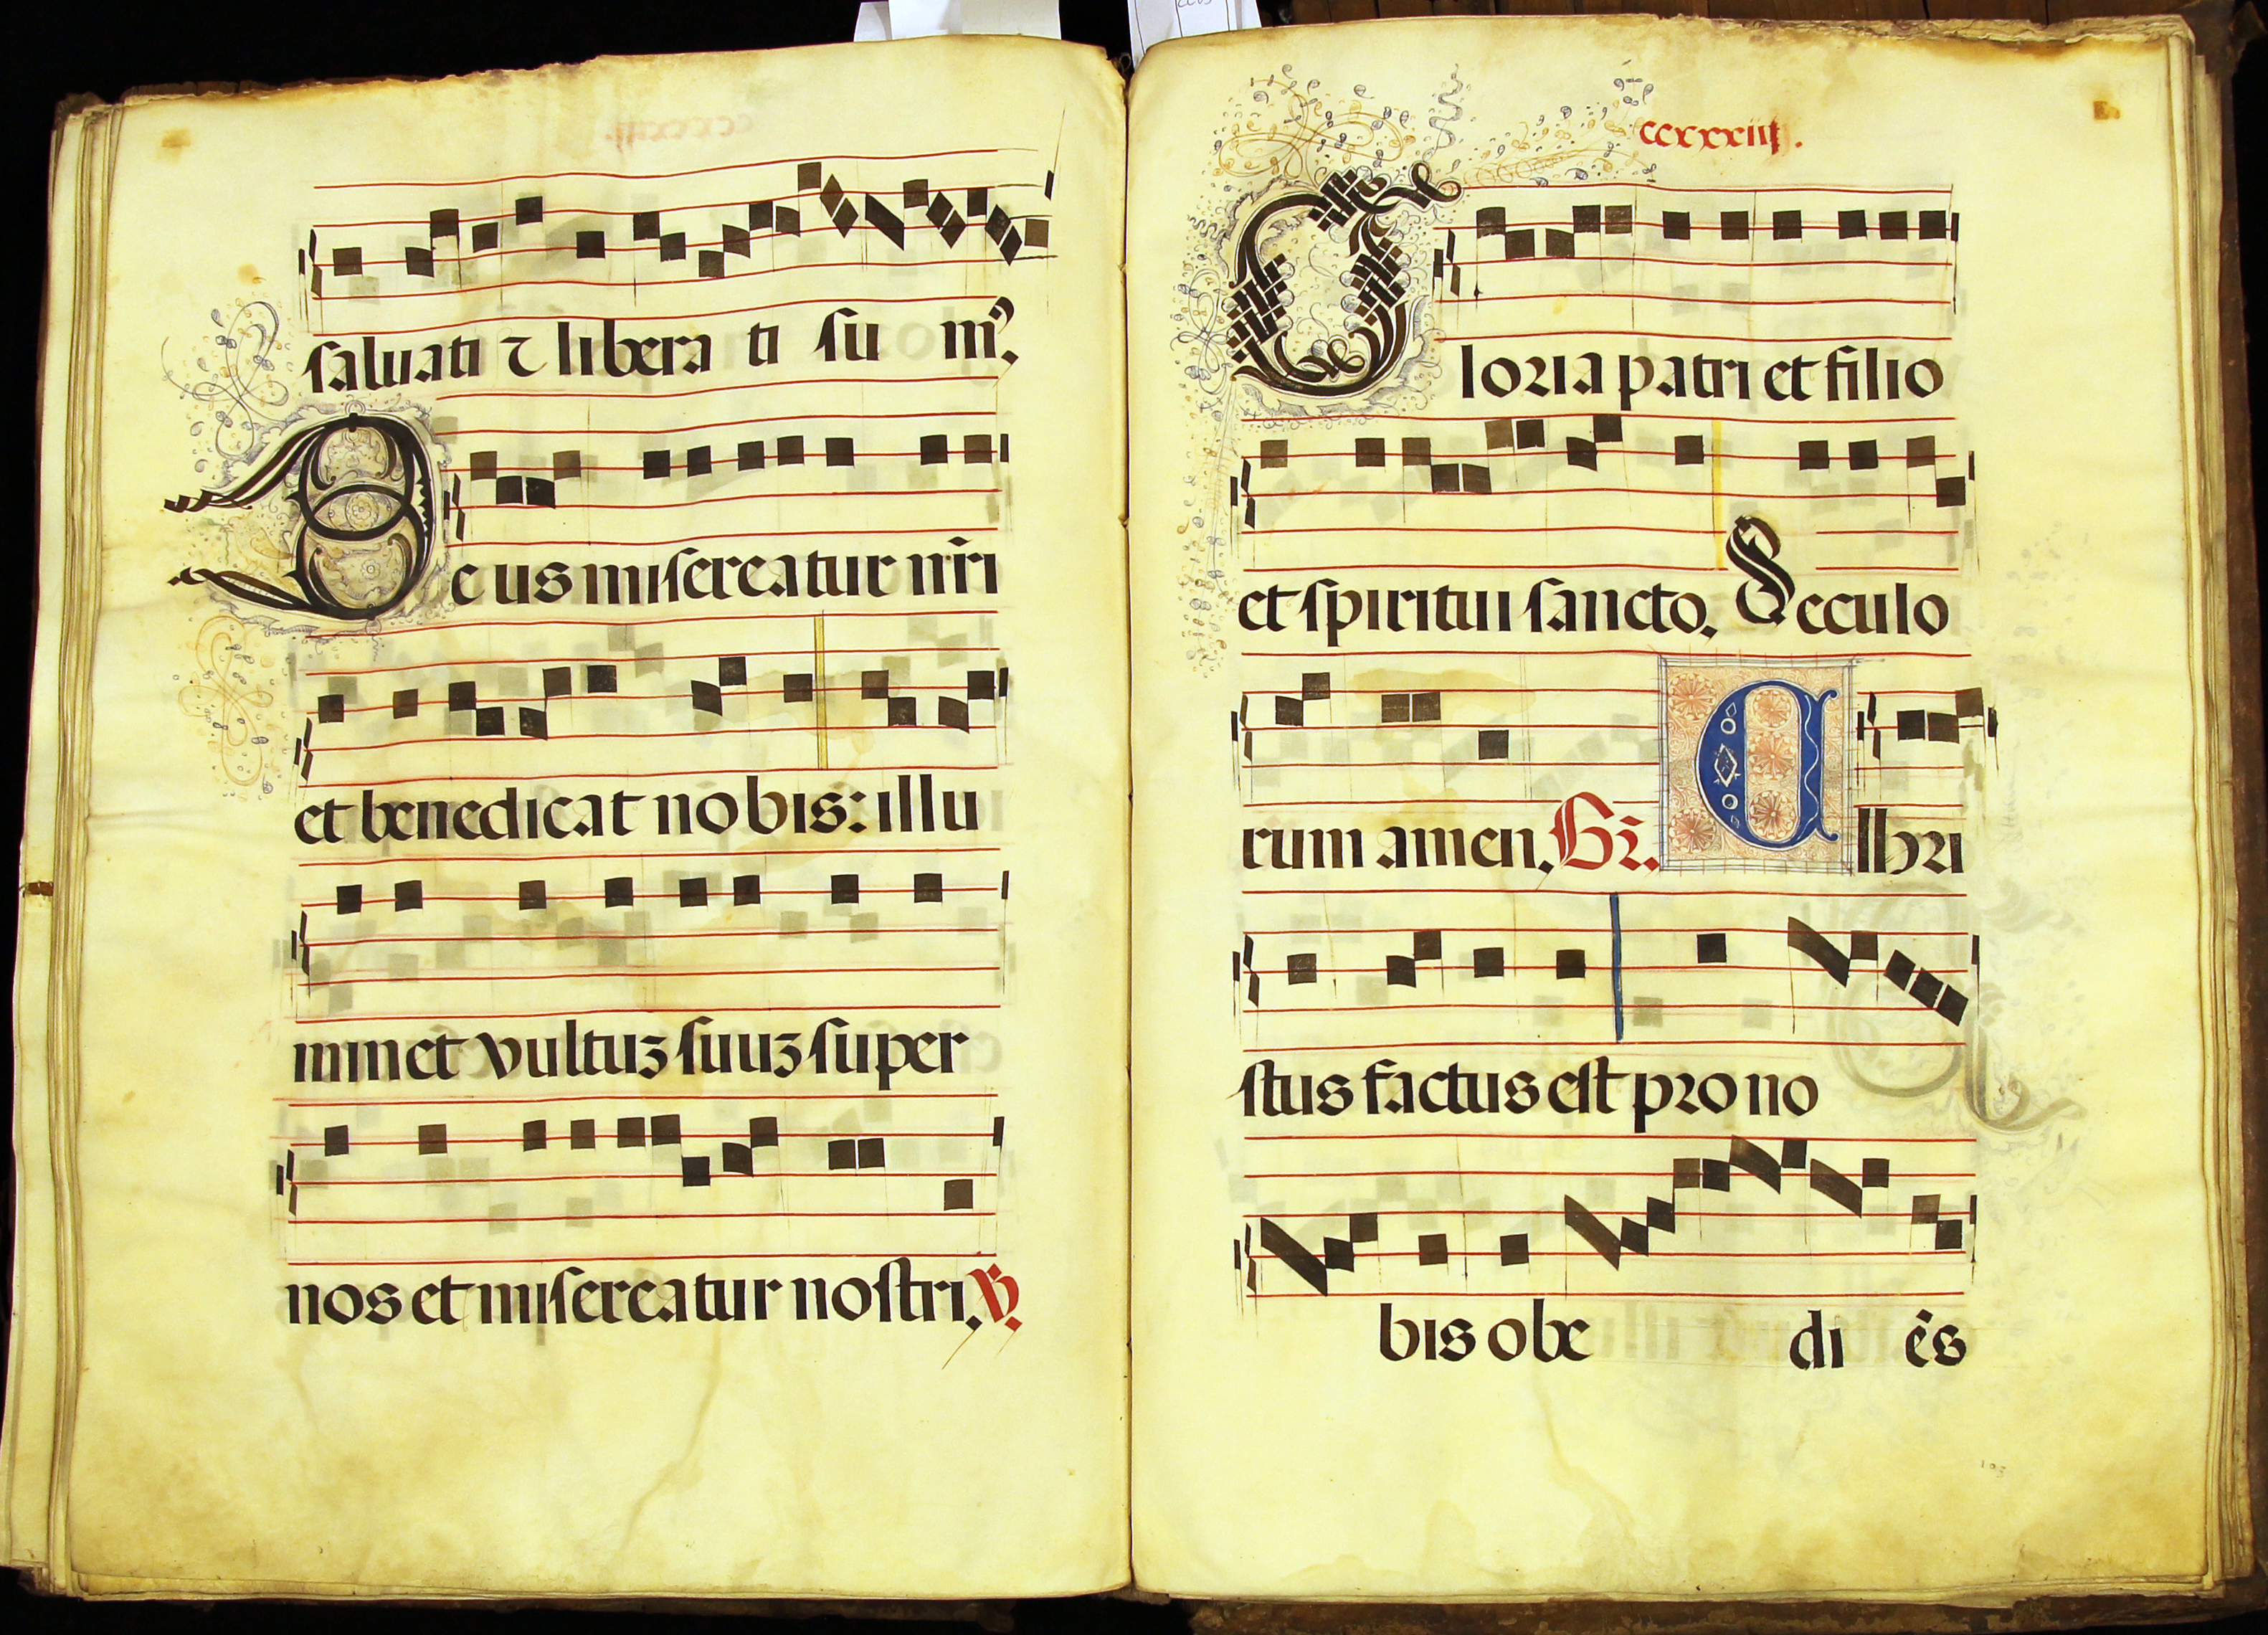 saluati ⁊ libera ti su m᷒.
Deus misereatur nr̄i
et benedicat nobis: illu
minet vultuꝫ suuꝫ super
nos et misereatur nostri. ℣.
ccxxxiiij.
Gloria patri et filio
et spiritui sancto. Seculo
rum amen. Gr̄. Christus factus est pro no
bis obe di ēs